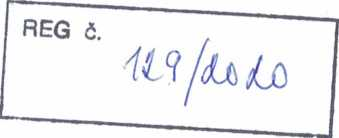 REG č.
129/2020